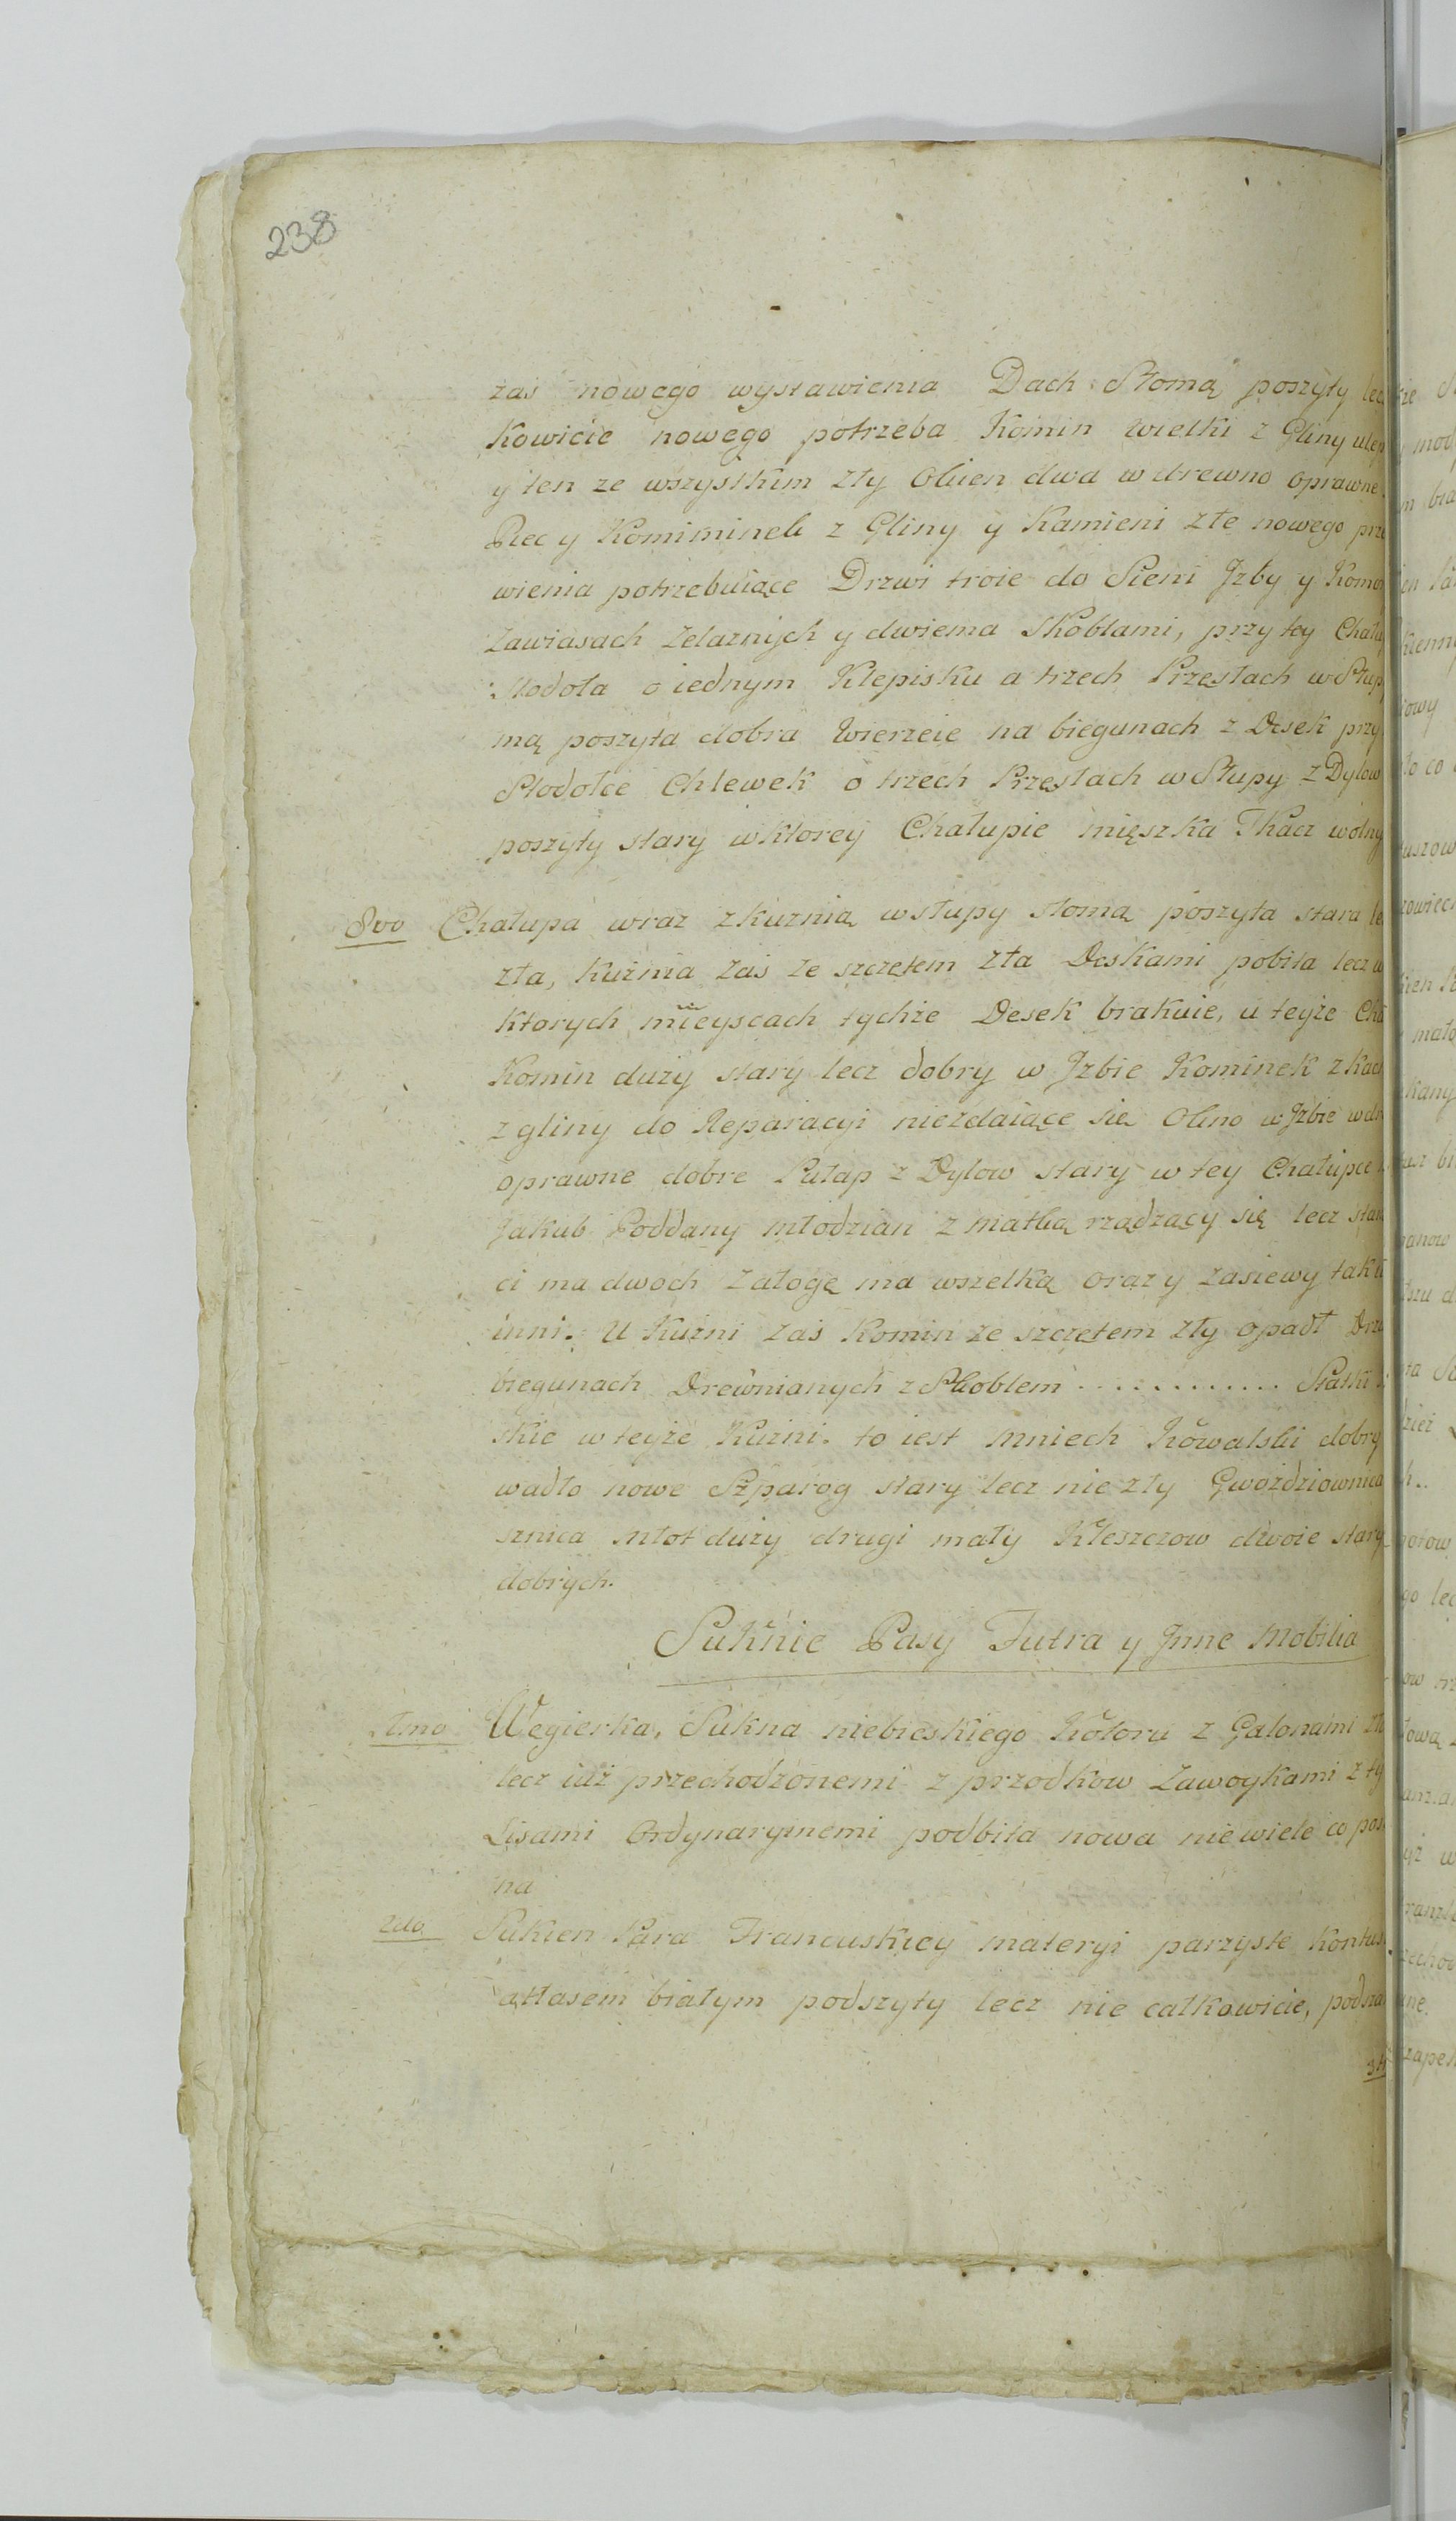 238
zaś nowego wystawienia Dach Słomą poszyty lec
kowicie nowego potrzeba Komin wielki z Gliny ulep
y ten ze wszystkim zły Okien dwa w drewno oprawne
Piec y Komiminek z Gliny y Kamieni złe nowego prze
wienia potrzebuiące Drzwi troie do Sieni Jzby y Komo
Zawiasach Zelaznych y dwiema Skoblami, przy tey Chału
Stodoła o iednym Klepisku a trzech Przęsłach w Słup
mą poszyta dobra Wierzeie na biegunach z Desek przy
Stodołce Chlewek o trzech Przęsłach w Słupy z Dylow
poszyty stary w ktorey Chałupie mięszka Tkacz wolny
8vo Chałupa wraz z kuznią w słupy słomą poszyta stara le
zła, kuźnia zaś ze szczętem zła Deskami pobita lecz w
ktorych mieyscach tychże Desek brakuie, u teyże Cha
Komin duży stary lecz dobry w Jzbie Kominek z kach
z gliny do Reparacyi niezdaiące się Okno w Jzbie w dr
oprawne dobre Pułap z Dylow stary w tey Chałupce
Jakub Poddany młodzian z matką rządzący się lecz star
ci ma dwoch Załogę ma wszelką oraz y zasiewy tak i
inni. U Kuzni zaś Komin ze szczętem zły opadł Drz
biegunach Drewnianych z Skoblem . . . . . . . . . . . . . Statki
skie w teyże Kuzni. to iest Mniech Kowalski dobry
wadło nowe Szparog stary lecz nie zły Gwozdziownica
sznica Młot duży drugi mały Kleszczow dwoie stary
dobrych.
Suknie Pasy Futra y Jnne Mobilia
1mo Węgierka, Sukna niebieskiego Koloru z Galonami
lecz iuż przechodzonemi z przodkow Zawoykami z ty
Lisami Ordynaryinemi podbita nowa niewiele co pos
na
2do Sukien Para Francuskiey materyi parzyste Kontus
atłasem białym podszyty lecz nie całkowicie, podsza